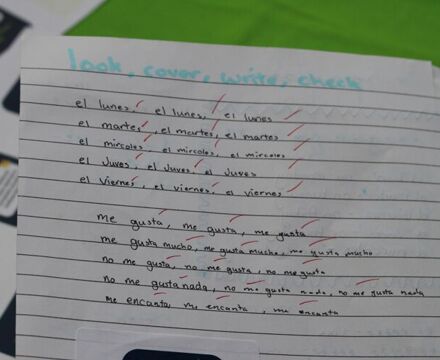 look, cover, write, check
el lunes, el lunes, el lunes
el martes, el martes, el martes
el mircoles, el mircoles, el mircoles
el Juves, el Juves, el Juves
el viernes, el viernes, el viernes
me gusta, me gusta, me gusta
me gusta mucho, me gusta mucho, me gusta mucho
no me gusta, no me gusta, no me gusta
no me gusta nada, no me gusta nada, no me gusta nada
me encanta, me encanta, me encanta